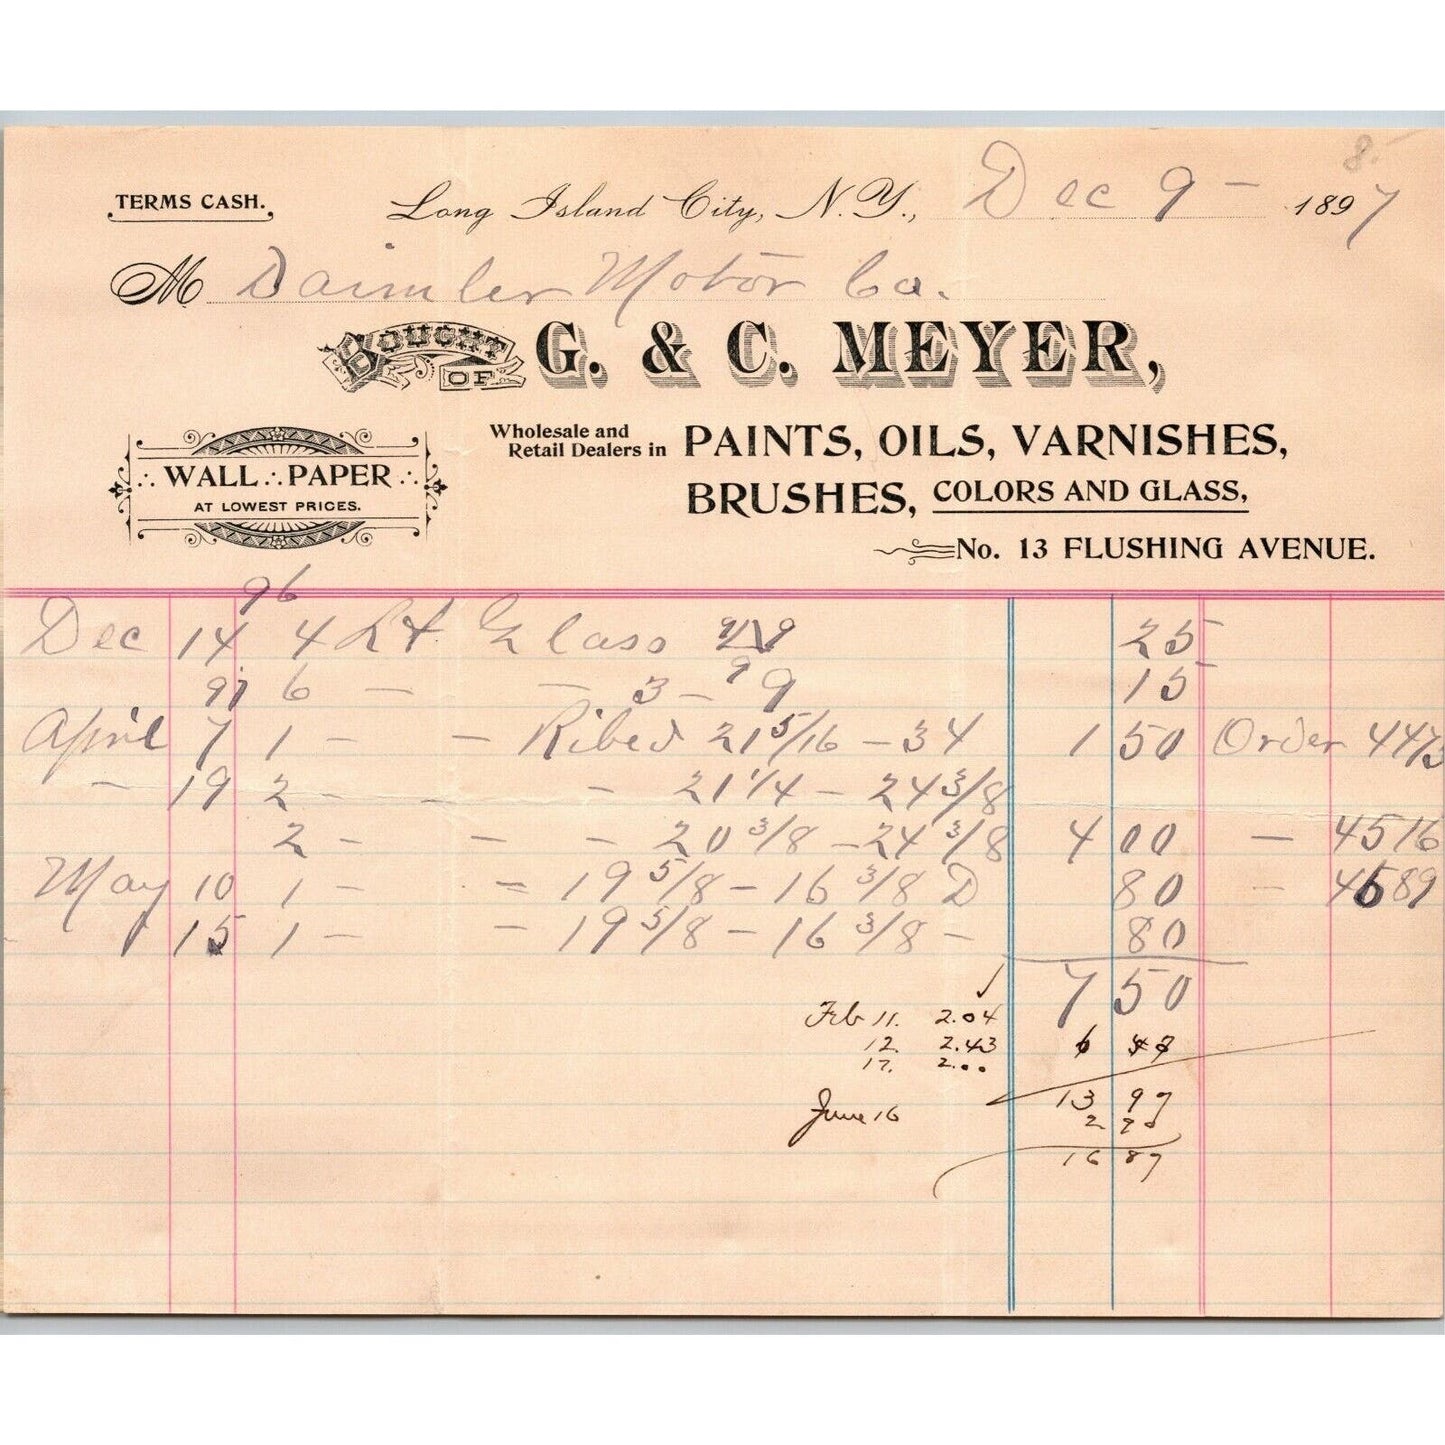 8.
TERMS CASH. Long Island City, N.Y., Dec 9 - 1897
M Daimler Motor Co.
BOUGHT OF G. & C. MEYER,
Wholesale and Retail Dealers in PAINTS, OILS, VARNISHES,
∴ WALL ∴ PAPER ∴
AT LOWEST PRICES.
BRUSHES, COLORS AND GLASS,
No. 13 FLUSHING AVENUE.
96
Dec 14 4 Lt Glass 9 25
97 6 - - 3 - 9 15
April 7 1 - - Ribed 21 5/16 - 34 1 50 Order 4473
- 19 2 - - - 21 1/4 - 24 3/8
2 - - - 20 3/8 - 24 3/8 4 00 - 4516
May 10 1 - - 19 5/8 - 16 3/8 D 80 - 4589
15 1 - - 19 5/8 - 16 3/8 - 80
✓ 7 50
Feb 11. 2.04
12. 2.43 6 47
17. 2.00
13 97
June 16 2 90
16 87